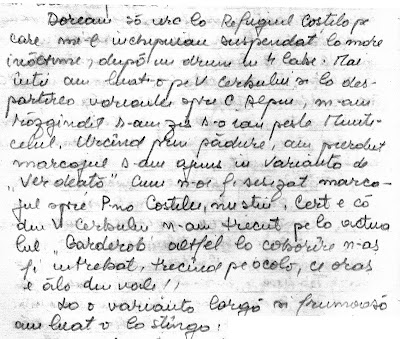 Doream să urc la Refugiul Costila pe
care mi-l închipuiam suspendat la mare
înălțime, după un drum în 4 labe. Mai
întîi am luat-o pe V Cerbului și la des-
părțirea variantei spre C Alpin, m-am
răzgîndit s-am zis s-o iau peste Munti-
celul. Urcînd prin pădure, am pierdut
marcajul s-am ajuns in varianta de
„Verdeață" Cum n-oi fi sesizat marca-
jul spre P-na Costilei, nu știu. Cert e că
din V Cerbului n-am trecut pe la actua
lul "Garderob" altfel la coborîre n-aș
fi întrebat, trecînd pe acolo, ce oraș
e ăla din vale!,
La o variantă largă și frumoasă
am luat-o la stînga!